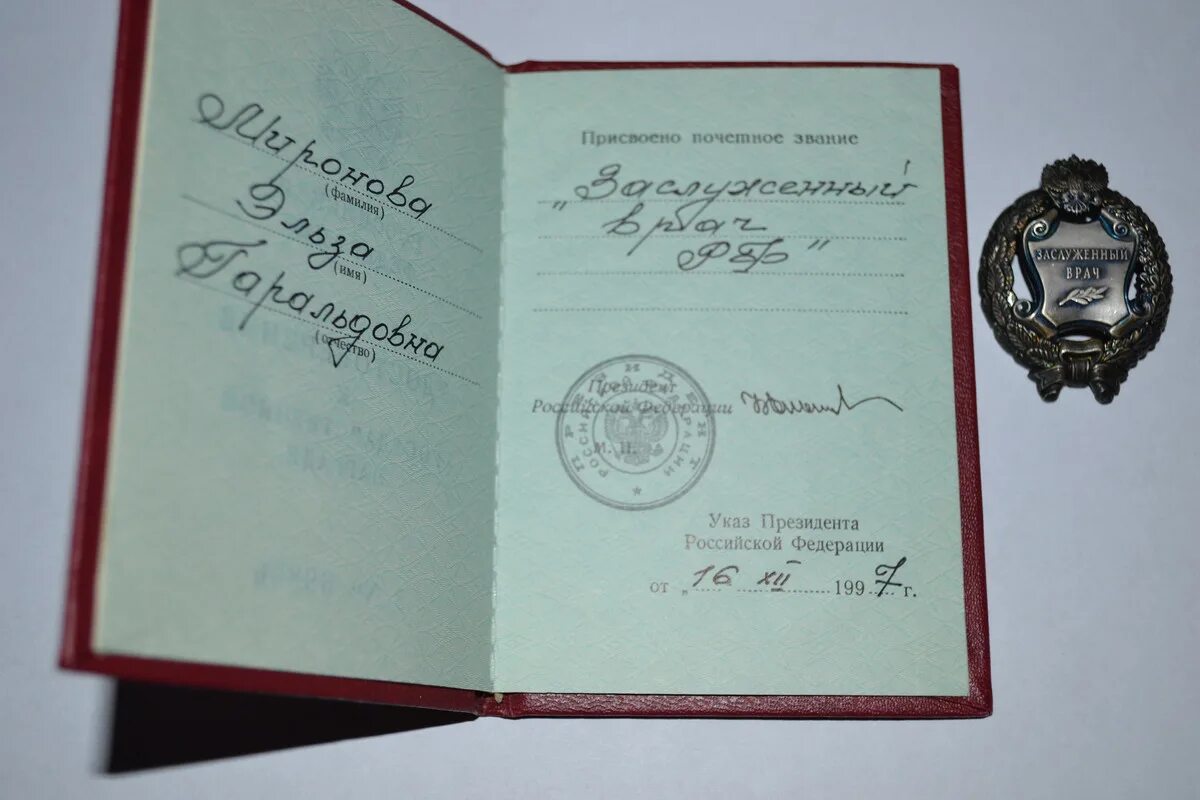 Миронова
(фамилия)
Эльза
(имя)
Гаральдовна
(отчество)
Присвоено почетное звание
„Заслуженный
врач
РФ"
Президент
Российской Федерации
М. П.
ПРЕЗИДЕНТ
РОССИЙСКОЙ ФЕДЕРАЦИИ
Указ Президента
Российской Федерации
от „16 XII 1997 г.
ЗАСЛУЖЕННЫЙ
ВРАЧ